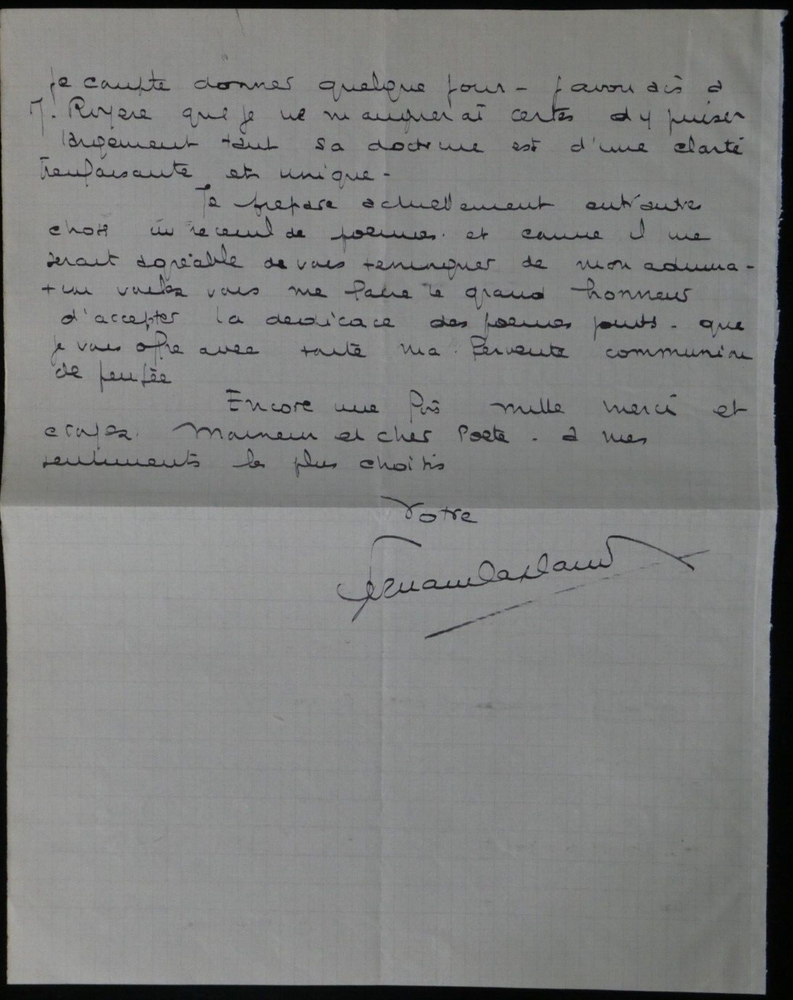 je compte donner quelque jour - j'avouais à
J. Royère que je ne manquerai certes d'y puiser
largement tant sa doctrine est d'une clarté
bienfaisante et unique -
Je prépare actuellement entr'autres
chose un recueil de poèmes. et comme il me
serait agréable de vous témoigner de mon admira-
tion voulez vous me faire le grand honneur
d'accepter la dédicace des poèmes joints - que
je vous offre avec toute ma fervente communion
de pensée
Encore une fois mille merci et
croyez, Monsieur et cher Poète - à mes
sentiments les plus choisis
Votre